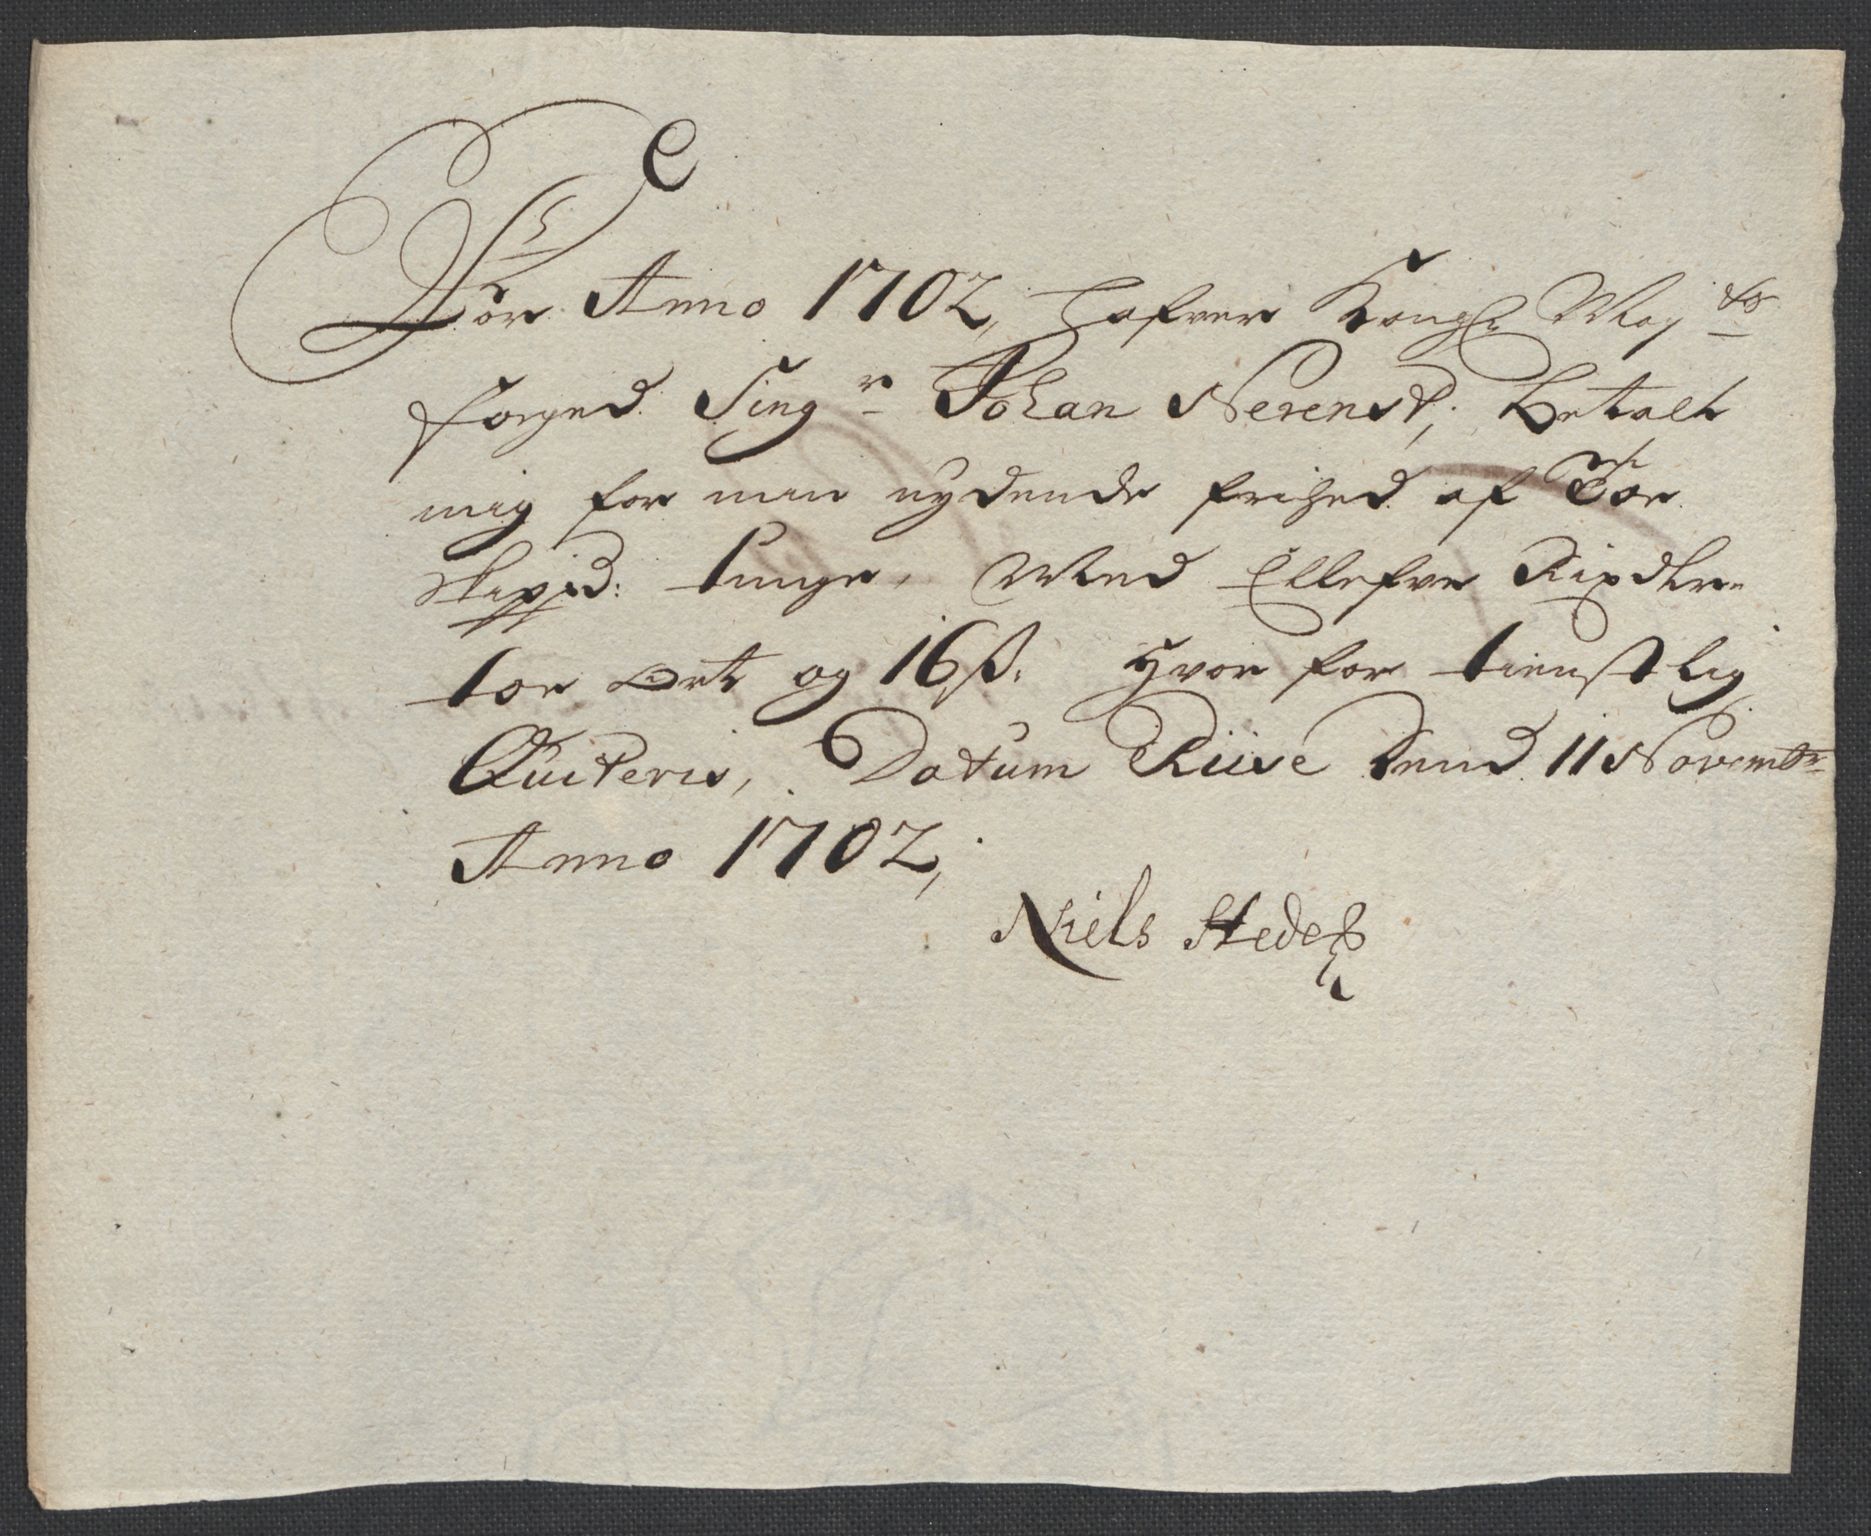 For Anno 1702, hafver Kongl: May ts
foged Sing r Johan Nerenst; betalt
mig for min nydende frihed af Toe
skippd: tunge, Med Ellefve Rixdlr
toe ort og 16 s. Hvor for tienstlig
Quiteris, Datum Riise dend 11 Novembr
Anno 1702,
Niels Stedes